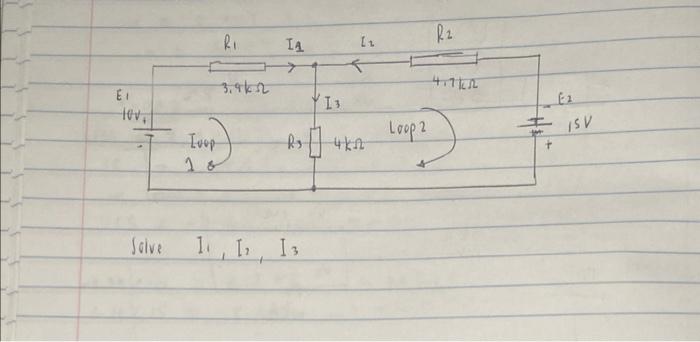 R1 I1 I2 R2
3.9kΩ 4.7kΩ
E1 I3 - E2
10V + 15V
- Loop 1 R3 4kΩ Loop2 +
Solve I1, I2, I3